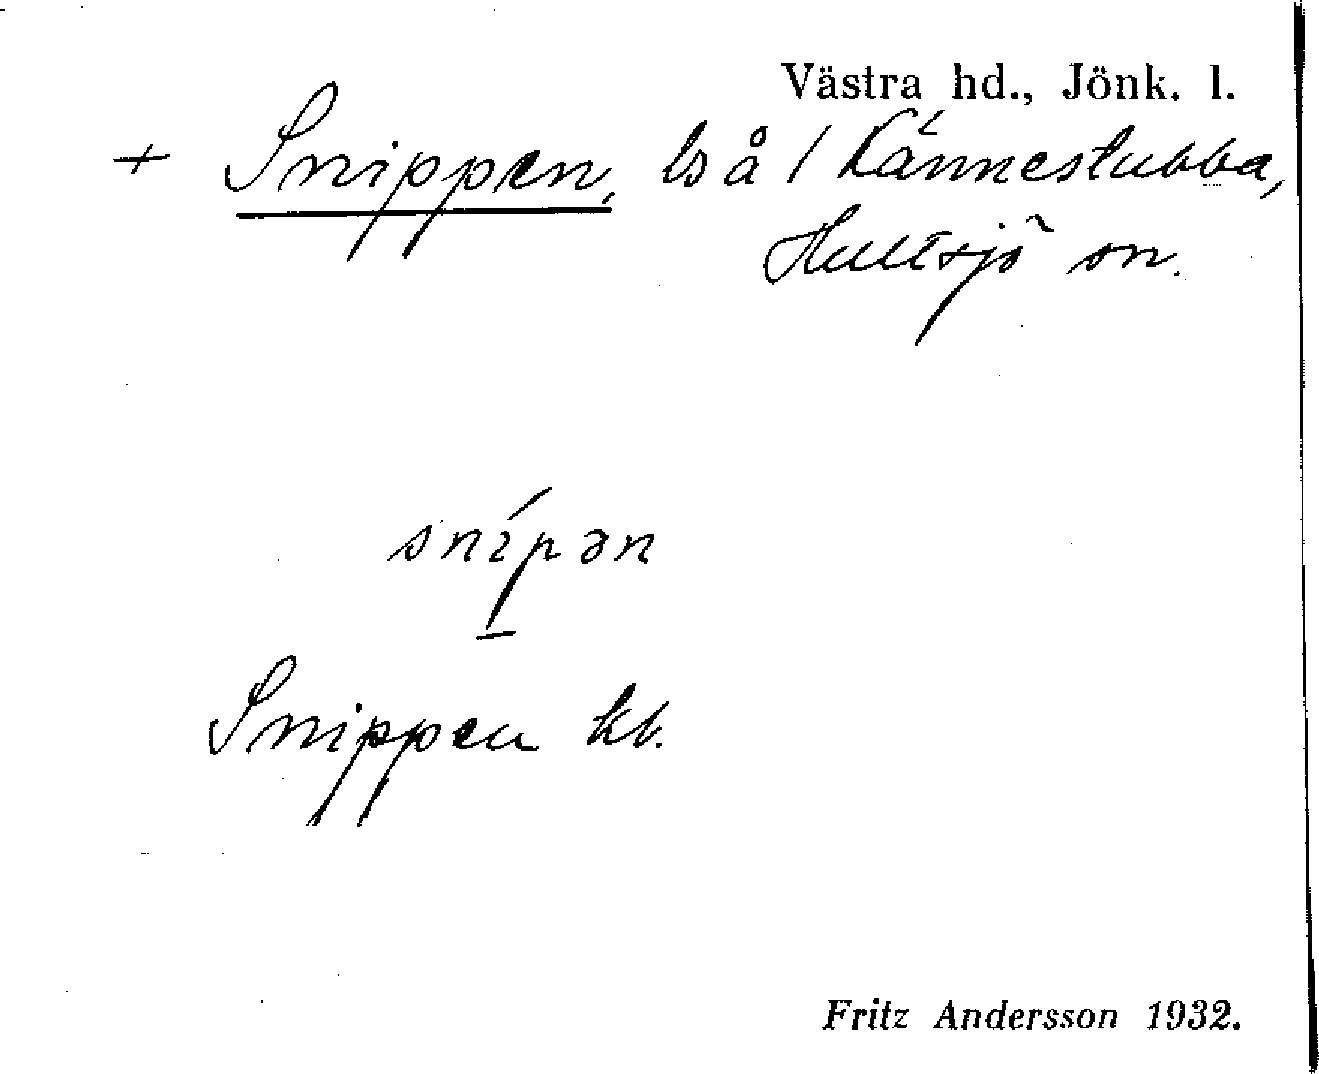 Västra hd., Jönk. l.
+ Snippen, ls å / Kännestubba,
Hultsjö sn.
snípən
Snippen kb.
Fritz Andersson 1932.